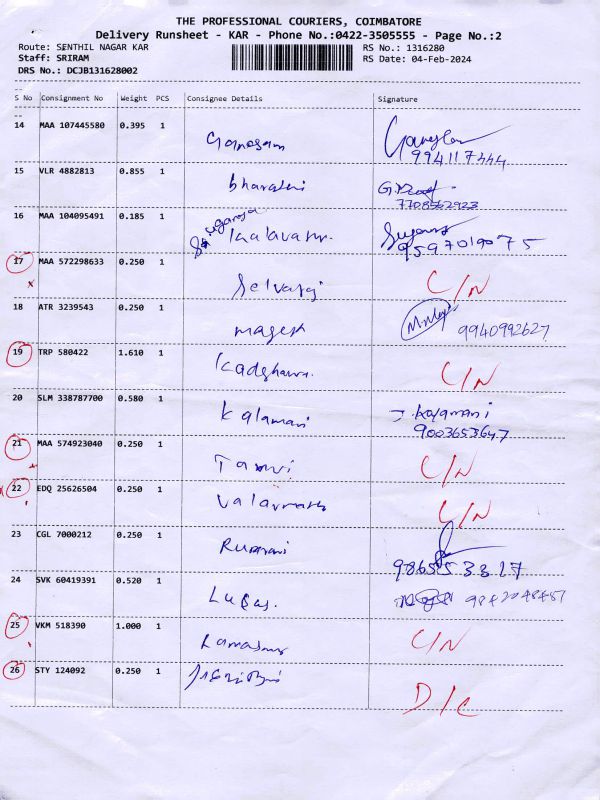 THE PROFESSIONAL COURIERS, COIMBATORE
Delivery Runsheet - KAR - Phone No.:0422-3505555 - Page No.:2
Route: SENTHIL NAGAR KAR RS No.: 1316280
Staff: SRIRAM RS Date: 04-Feb-2024
DRS No.: DCJB131628002
S No Consignment No Weight PCS Consignee Details Signature
14 MAA 107445580 0.395 1 Ganesam
994117444
15 VLR 4882813 0.855 1 bharathi
7708562923
16 MAA 104095491 0.185 1
9597019075
17 MAA 572298633 0.250 1 Selvaraj C/N
18 ATR 3239543 0.250 1 magesh 9940992627
19 TRP 580422 1.610 1 C/N
20 SLM 338787700 0.580 1 Kalamani J. Kalamani
9003653647
21 MAA 574923040 0.250 1 C/N
22 EDQ 25626504 0.250 1 C/N
23 CGL 7000212 0.250 1 Rumani
986553327
24 SVK 60419391 0.520 1 Lucas.
25 VKM 518390 1.000 1 C/N
26 STY 124092 0.250 1 D/C